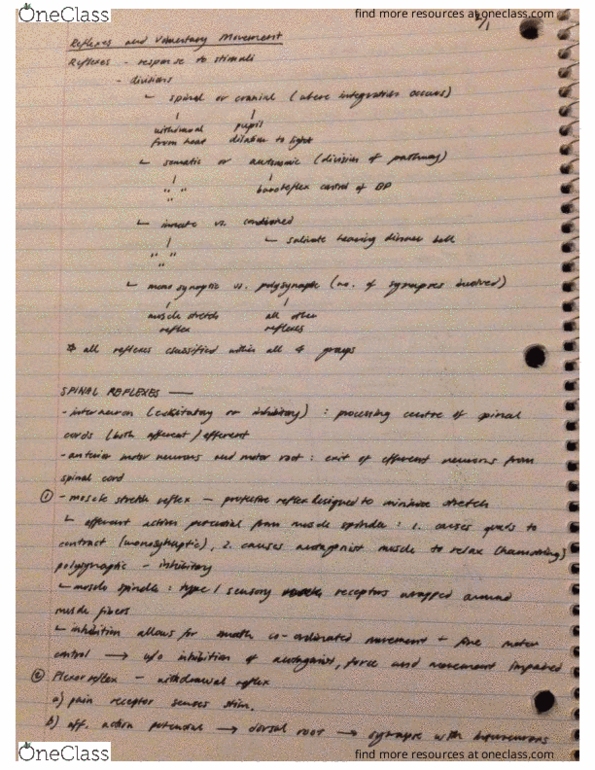 OneClass
find more resources at oneclass.com
2/1
Reflexes and Voluntary Movement
Reflexes - response to stimuli
- divisions
↳ spinal or cranial (where integration occurs)
withdrawal pupil
from heat dilation to light
↳ somatic or autonomic (division of pathway)
" " baroreflex control of BP
"
↳ innate vs. conditioned
" " ↳ salivate hearing dinner bell
"
↳ monosynaptic vs. polysynaptic (no. of synapses involved)
muscle stretch all other
reflex reflexes
* all reflexes classified within all 4 groups
SPINAL REFLEXES —
- interneuron (excitatory or inhibitory) : processing centre of spinal
cords (both afferent / efferent
- anterior motor neurons and motor root : exit of efferent neurons from
spinal cord
① - muscle stretch reflex — protective reflex designed to minimize stretch
↳ afferent action potential from muscle spindle : 1. causes quads to
contract (monosynaptic), 2. causes antagonist muscle to relax (hamstring)
polysynaptic - inhibitory
↳ muscle spindle : type 1 sensory receptors wrapped around
muscle fibers
↳ inhibition allows for smooth co-ordinated movement + fine motor
control → w/o inhibition of antagonist, force and movement impaired
② Flexor reflex - withdrawal reflex
a) pain receptor senses stim.
b) aff. action potential → dorsal root → synapse with interneurons
OneClass
find more resources at oneclass.com